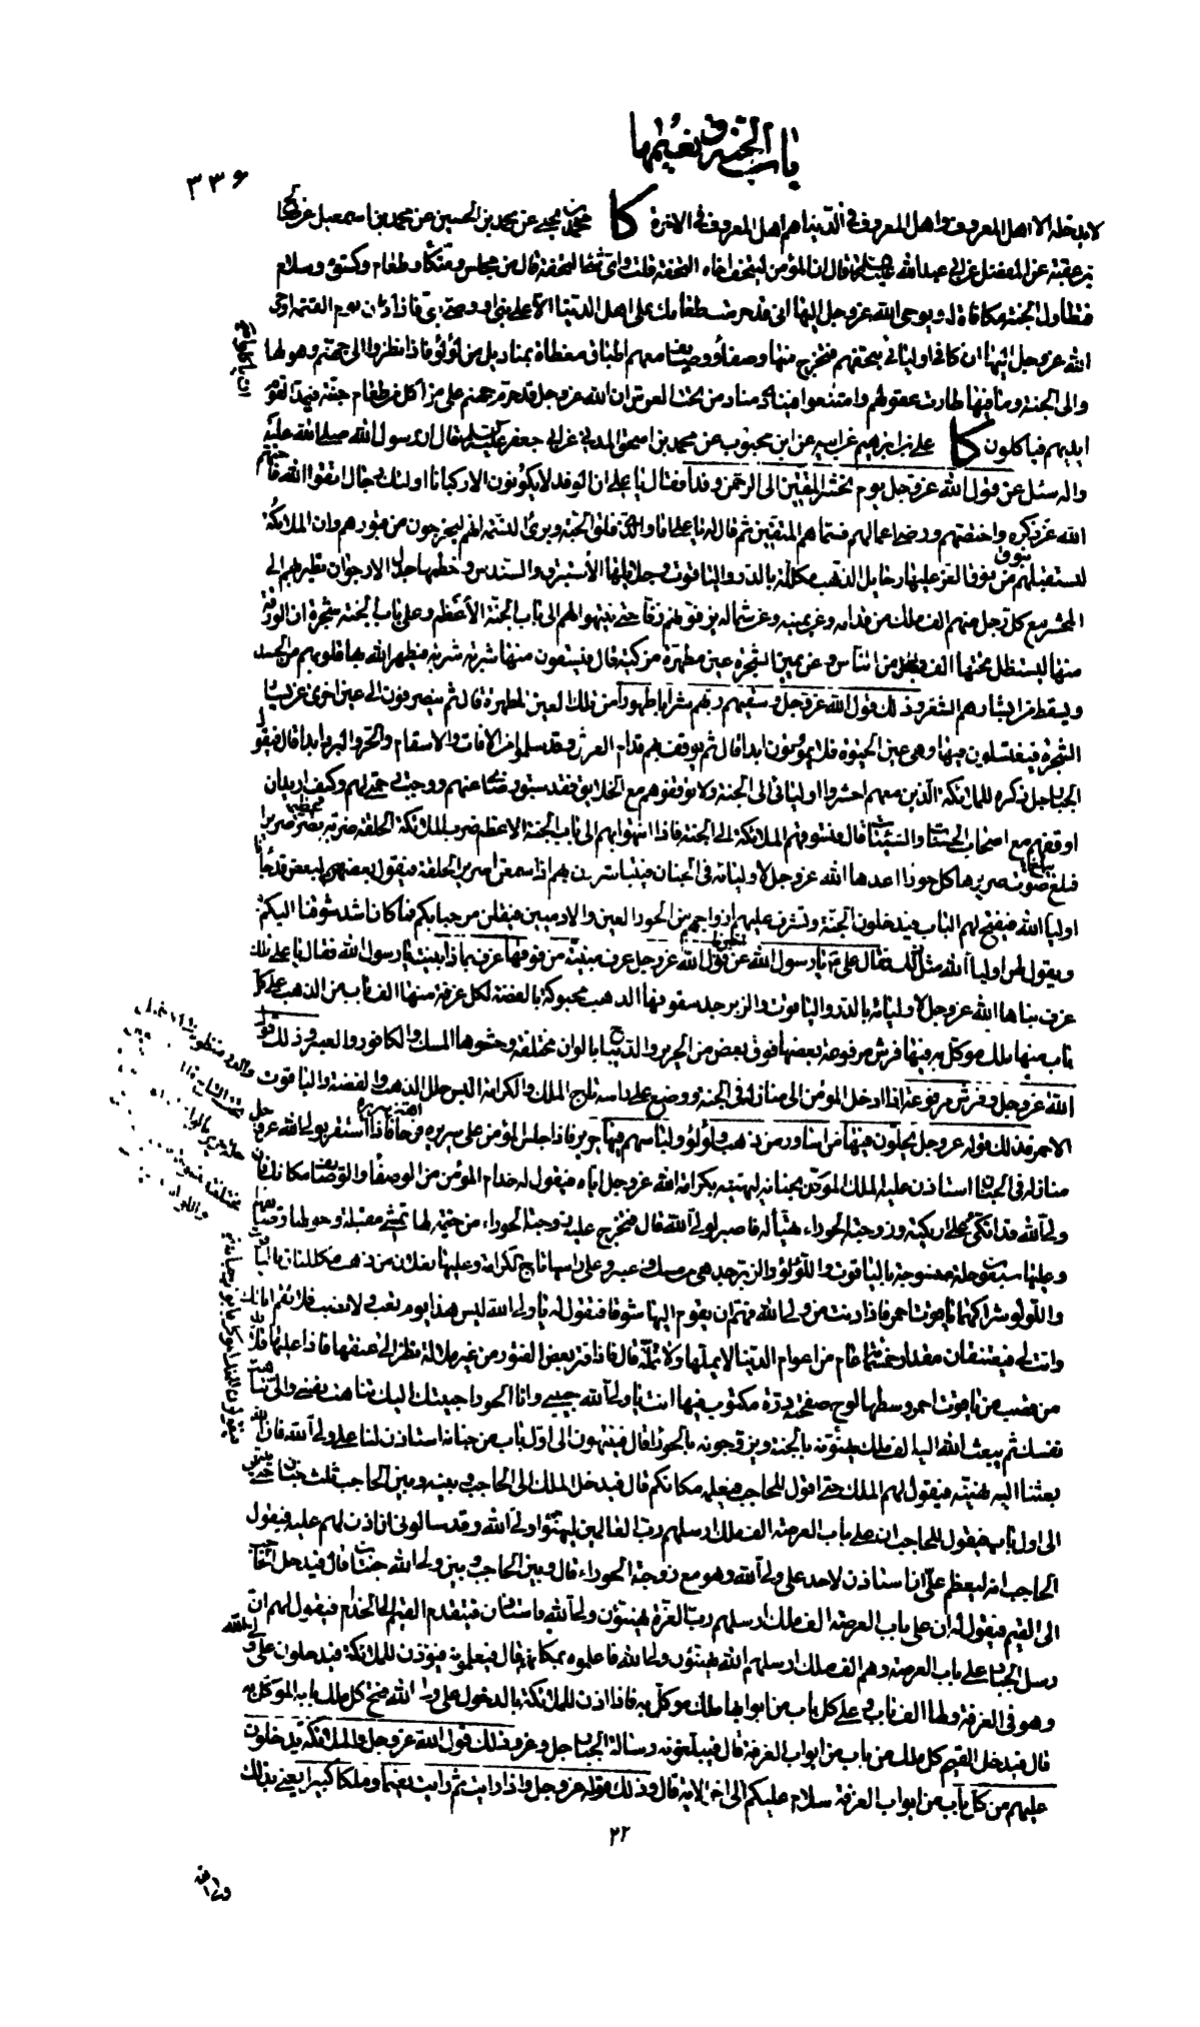 باب الجنة ونعيمها
٣٣۶
لا يدخله الا اهل المعروف واهل المعروف في الدنيا هم اهل المعروف في الاخرة كا محمد بن يحيى عن محمد بن الحسين عن محمد بن اسمعيل عن صالح
بن عقبة عن المفضل عن ابي عبد الله قال ان المؤمن ليتحف اخاه التحفة قلت واي شئ التحفة قال من مجلس ومتكأ وطعام وكسوة وسلام
فتطاول الجنة مكافاة له ويوحي الله عز وجل اليها اني قد حرمت طعامك على اهل الدنيا الا على نبي او وصي نبي فاذا كان يوم القيمة اوحى
الله عز وجل اليها ان كافي اوليائي بتحفهم فتخرج منها وصفاء ووصايف معهم اطباق مغطاة بمناديل من لؤلؤ فاذا نظروا الى جهنم وهولها
والى الجنة وما فيها طارت عقولهم وامتنعوا فينادي مناد من تحت العرش ان الله عز وجل قد حرم جهنم على من اكل من طعام جنته فيمد القوم
ايديهم فياكلون كا علي بن ابرهيم عن ابيه عن ابن محبوب عن محمد بن اسحق المدني عن ابي جعفر قال ان رسول الله صلى الله عليه
واله سئل عن قول الله عز وجل يوم نحشر المتقين الى الرحمن وفدا فقال يا علي ان الوفد لا يكونون الا ركبانا اولئك رجال اتقوا الله فاحبهم
الله عز ذكره واختصهم ورضي اعمالهم فسماهم المتقين ثم قال له يا علي اما والذي فلق الحبة وبرئ النسمة انهم ليخرجون من قبورهم وان الملائكة
لتستقبلهم بنوق من نوق العز عليها رحايل الذهب مكللة بالدر والياقوت وجلايلها الاستبرق والسندس وخطمها جدل الارجوان تطير بهم الى
المحشر مع كل رجل منهم الف ملك من قدامه وعن يمينه وعن شماله يزفونهم زفا حتى ينتهوا بهم الى باب الجنة الاعظم وعلى باب الجنة شجرة ان الورقة
منها ليستظل تحتها الف رجل من الناس وعن يمين الشجرة عين مطهرة مزكية قال فيسقون منها شربة شربة فيطهر الله بها قلوبهم من الحسد
ويسقط من ابشارهم الشعر وذلك قول الله عز وجل وسقيهم ربهم شرابا طهورا من تلك العين المطهرة قال ثم ينصرفون الى عين اخرى عن يسار
الشجرة فيغتسلون فيها وهي عين الحيوة فلا يموتون ابدا قال ثم يوقف بهم قدام العرش وقد سلموا من الافات والاسقام والحر والبرد ابدا قال فيقول
الجبار جل ذكره للملائكة الذين معهم احشروا اوليائي الى الجنة ولا توقفوهم مع الخلايق فقد سبق رضائي عنهم ووجبت رحمتي لهم وكيف اريد ان
اوقفهم مع اصحاب الحسنات والسيئات قال فتسوقهم الملائكة الى الجنة فاذا انتهوا بهم الى باب الجنة الاعظم ضرب الملائكة الحلقة ضربة تصر صريرا
فبلغ صوت صريرها كل حوراء اعدها الله عز وجل لاوليائه في الجنان فيتباشرن بهم اذا سمعن صرير الحلقة فيقول بعضهن لبعض قد جاءنا
اولياء الله فيفتح لهم الباب فيدخلون الجنة وتشرف عليهم ازواجهم من الحور العين والادميين فيقلن مرحبا بكم فما كان اشد شوقنا اليكم
ويقول لهن اولياء الله مثل ذلك فقال علي يا رسول الله عن قول الله عز وجل غرف مبنية من فوقها غرف بماذا بنيت يا رسول الله فقال يا علي تلك
غرف بناها الله عز وجل لاوليائه بالدر والياقوت والزبرجد سقوفها الذهب محبوكة بالفضة لكل غرفة منها الف باب من الذهب على كل
باب منها ملك موكل به فيها فرش مرفوعة بعضها فوق بعض من الحرير والديباج بالوان مختلفة وحشوها المسك والكافور والعنبر وذلك قول
الله عز وجل وفرش مرفوعة اذا ادخل المؤمن الى منازله في الجنة ووضع على راسه تاج الملك والكرامة البس حلل الذهب والفضة والياقوت
الاحمر فذلك قوله عز وجل يحلون فيها من اساور من ذهب ولؤلؤا ولباسهم فيها حرير فاذا جلس المؤمن على سريره اهتز سريره فرحا فاذا استقر لولي الله عز وجل
منازله في الجنان استاذن عليه الملك الموكل بجنانه ليهنيه بكرامة الله عز وجل اياه فيقول له خدام المؤمن من الوصفاء والوصايف مكانك فان
ولي الله قد اتكئ على اريكته وزوجته الحوراء تهيأ له فاصبر لولي الله قال فتخرج عليه زوجته الحوراء من خيمة لها تمشي مقبلة وحولها وصايفها
وعليها سبعون حلة منسوجة بالياقوت واللؤلؤ والزبرجد هي من مسك وعنبر وعلى راسها تاج الكرامة وعليها نعلان من ذهب مكللتان بالياقوت
واللولو شراكهما ياقوت احمر فاذا دنت من ولي الله فهم ان يقوم اليها شوقا فتقول له يا ولي الله ليس هذا يوم تعب ولا نصب فلا تقم انا لك
وانت لي فيعتنقان مقدار خمسمائة عام من اعوام الدنيا لا يملها ولا تمله قال فاذا فتر بعض الفتور من غير ملالة نظر الى عنقها فاذا عليها قلائد
من قصب من ياقوت احمر وسطها لوح صفحته درة مكتوب فيها انت يا ولي الله حبيبي وانا الحوراء حبيبتك اليك تناهت نفسي والي تناهت
نفسك ثم يبعث الله اليه الف ملك يهنؤنه بالجنة ويزوجونه بالحوراء قال فينتهون الى اول باب من جنانه استاذن لنا على ولي الله فان الله
بعثنا اليه نهنيه فيقول لهم الملك حتى اقول للحاجب فيعلمه مكانكم قال فيدخل الملك الى الحاجب وبينه وبين الحاجب ثلث جنان حتى ينتهي
الى اول باب فيقول للحاجب ان على باب العرصة الف ملك ارسلهم رب العالمين ليهنئوا ولي الله وقد سالوني ان اذن لهم عليه فيقول
الحاجب انه ليعظم علي ان استاذن لاحد على ولي الله وهو مع زوجته الحوراء قال وبين الحاجب وبين ولي الله جنتان قال فيدخل الحاجب
الى القيم فيقول له ان على باب العرصة الف ملك ارسلهم رب العزة يهنئون ولي الله فاستاذن فيتقدم القيم الى الخدام فيقول لهم ان
رسل الجبار على باب العرصة وهم الف ملك ارسلهم الله يهنئون ولي الله فاعلموه بمكانهم قال فيعلمونه فيؤذن للملائكة فيدخلون على ولي الله
وهو في الغرفة ولها الف باب وعلى كل باب من ابوابها ملك موكل به فاذا اذن للملائكة بالدخول على ولي الله فتح كل ملك بابه الموكل به
قال فيدخل القيم كل ملك من باب من ابواب الغرفة قال فيبلغونه رسالة الجبار جل وعز وذلك قول الله عز وجل والملائكة يدخلون
عليهم من كل باب من ابواب الغرفة سلام عليكم الى اخر الاية قال وذلك قوله عز وجل واذا رايت ثم رايت نعيما وملكا كبيرا يعني بذلك
٢٢